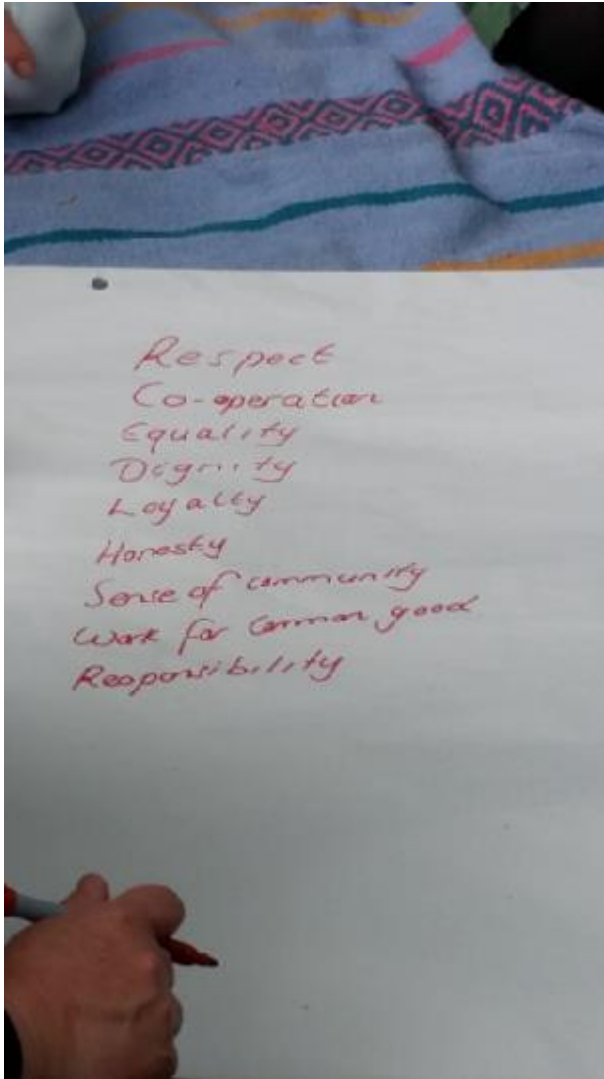 Respect
Co-operation
Equality
Dignity
Loyalty
Honesty
Sense of community
Work for common good
Responsibility